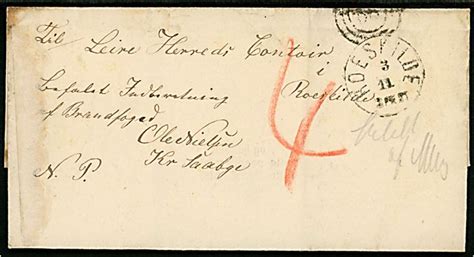 Til
Leire Herreds Contoir
i
Roeskilde
Befalet Indberetning
af Brandfoged
Ole Nielsen
Kr Saabye
N. P.
4
ROESKILDE
3
11